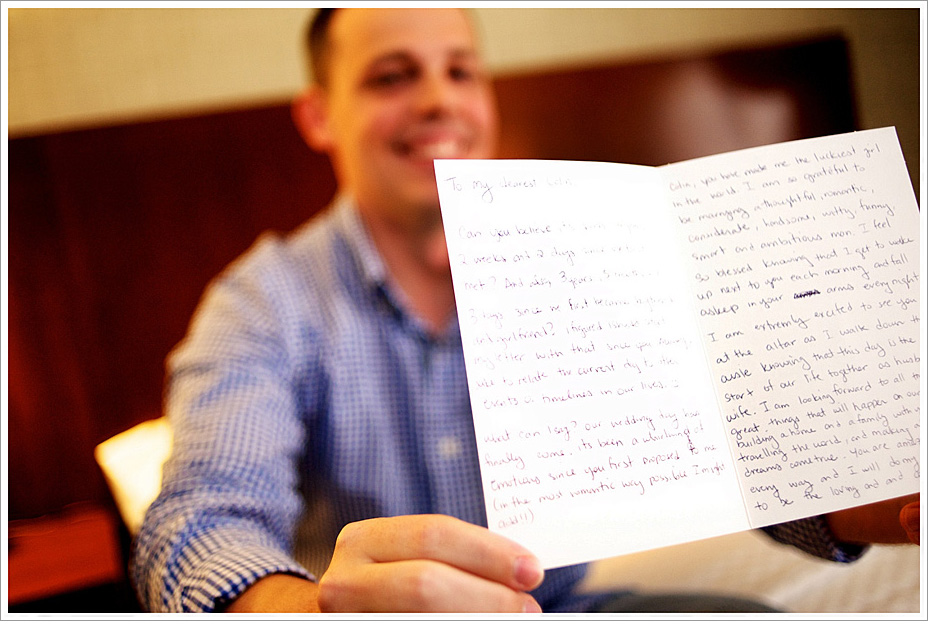 To my dearest
Can you believe
2 weeks and 2 days
met? And 3 years, 5
3 days since we first became
and girlfriend? I figured I would
my letter with that since you
use to relate the current day to
events or timelines in our lives. :)
What can I say? our wedding day has
finally come, its been a whirlwind of
emotions since you first proposed to me
(in the most romantic way possible I might
add!!)
Colin, you have made me the luckiest girl
in the world. I am so grateful to
be marrying a thoughtful, romantic,
considerate, handsome, witty, funny,
smart and ambitious man. I feel
so blessed knowing that I get to wake
up next to you each morning and fall
asleep in your arms every night
I am extremely excited to see you
at the altar as I walk down the
aisle knowing that this day is the
start of our life together as husb
wife. I am looking forward to all th
great things that will happen on our
building a home and a family with y
travelling the world, and making a
dreams come true. You are
every way and I will do my
to be the loving and and